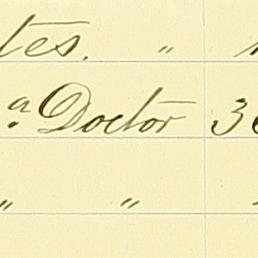 tes. "
a Doctor 3
" "